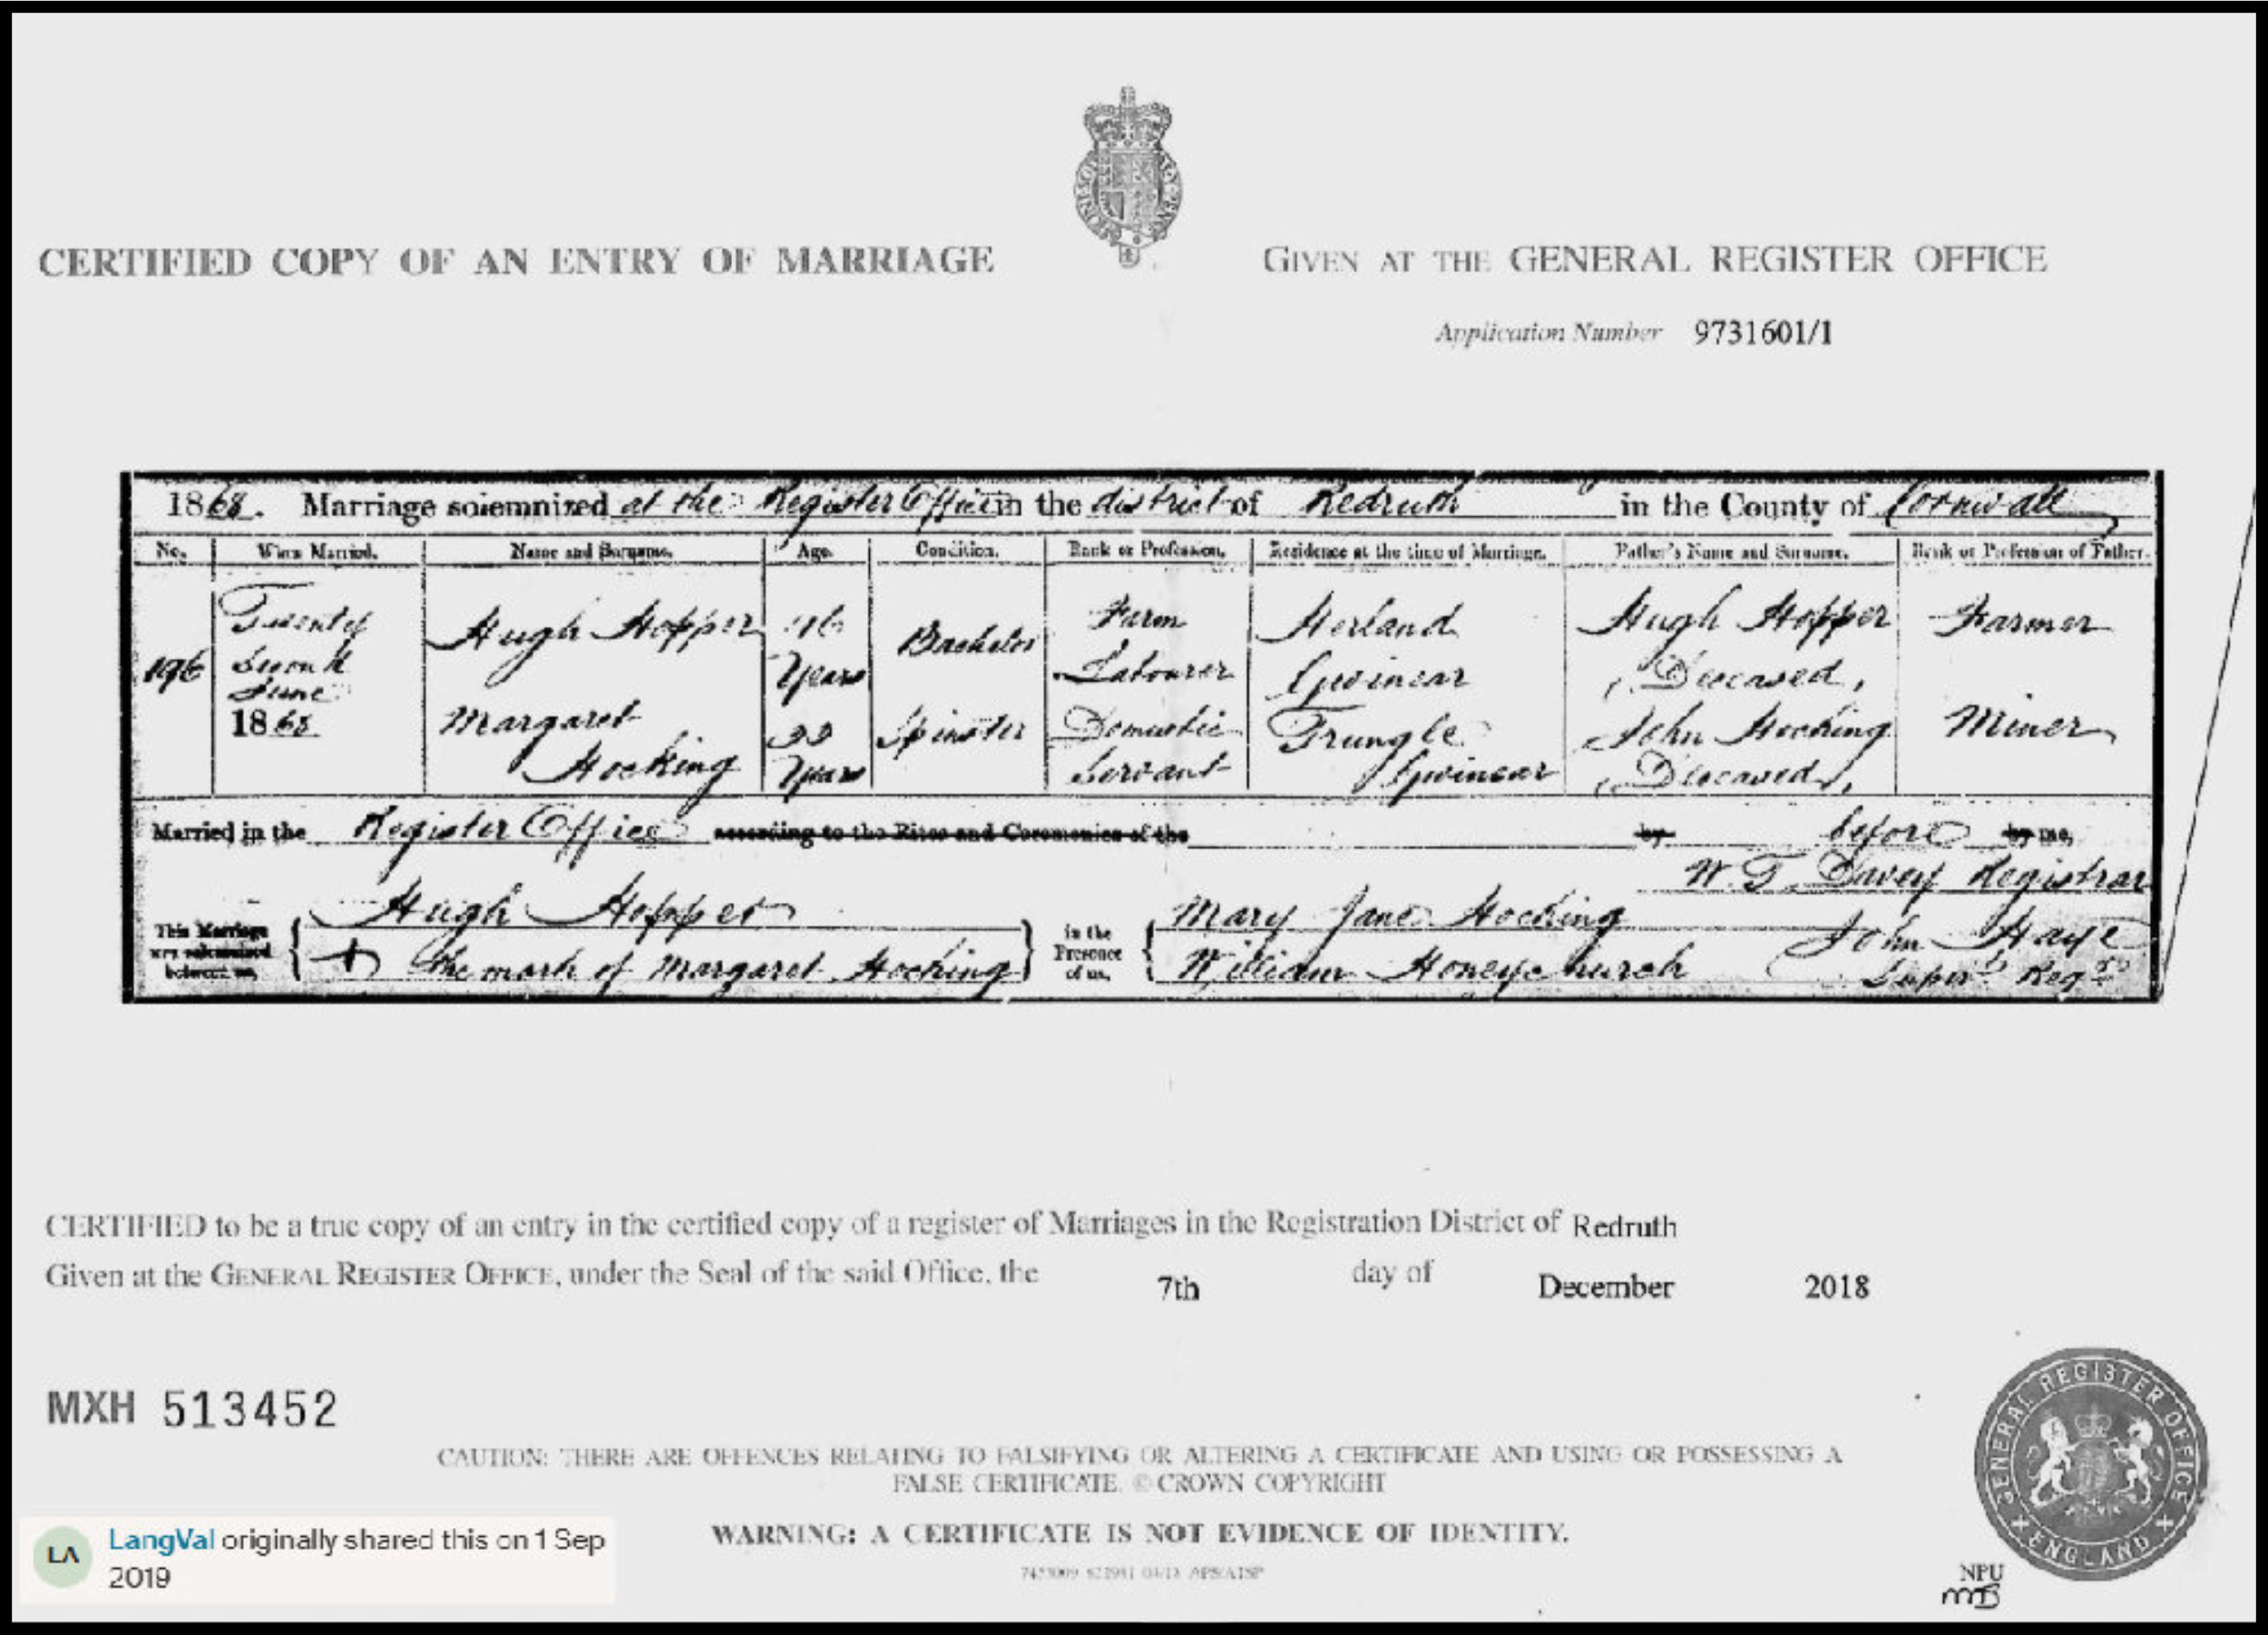 CERTIFIED COPY OF AN ENTRY OF MARRIAGE
GIVEN AT THE GENERAL REGISTER OFFICE
Application Number 9731601/1
1868. Marriage solemnized at the Register Office in the district of Redruth in the County of Cornwall
No. When Married. Name and Surname. Age. Condition. Rank or Profession. Residence at the time of Marriage. Father's Name and Surname. Rank or Profession of Father.
196 Twenty Second June 1868
Hugh Hopper Years Bachelor Farm Labourer Herland Gwinear Hugh Hopper (Deceased) Farmer
Margaret Hocking Years Spinster Domestic Servant Trungle Gwinear John Hocking (Deceased) Miner
Married in the Register Office according to the Rites and Ceremonies of the by before by me,
W. T. Davey Registrar
This Marriage was solemnized between us, Hugh Hopper
X the mark of Margaret Hocking
in the Presence of us, Mary Jane Hocking
William Honeychurch
John Supert Regr
CERTIFIED to be a true copy of an entry in the certified copy of a register of Marriages in the Registration District of Redruth
Given at the GENERAL REGISTER OFFICE, under the Seal of the said Office, the 7th day of December 2018
MXH 513452
CAUTION: THERE ARE OFFENCES RELATING TO FALSIFYING OR ALTERING A CERTIFICATE AND USING OR POSSESSING A
FALSE CERTIFICATE. © CROWN COPYRIGHT
WARNING: A CERTIFICATE IS NOT EVIDENCE OF IDENTITY.
GENERAL REGISTER OFFICE
ENGLAND
NPU
MB
LA
LangVal originally shared this on 1 Sep
2019